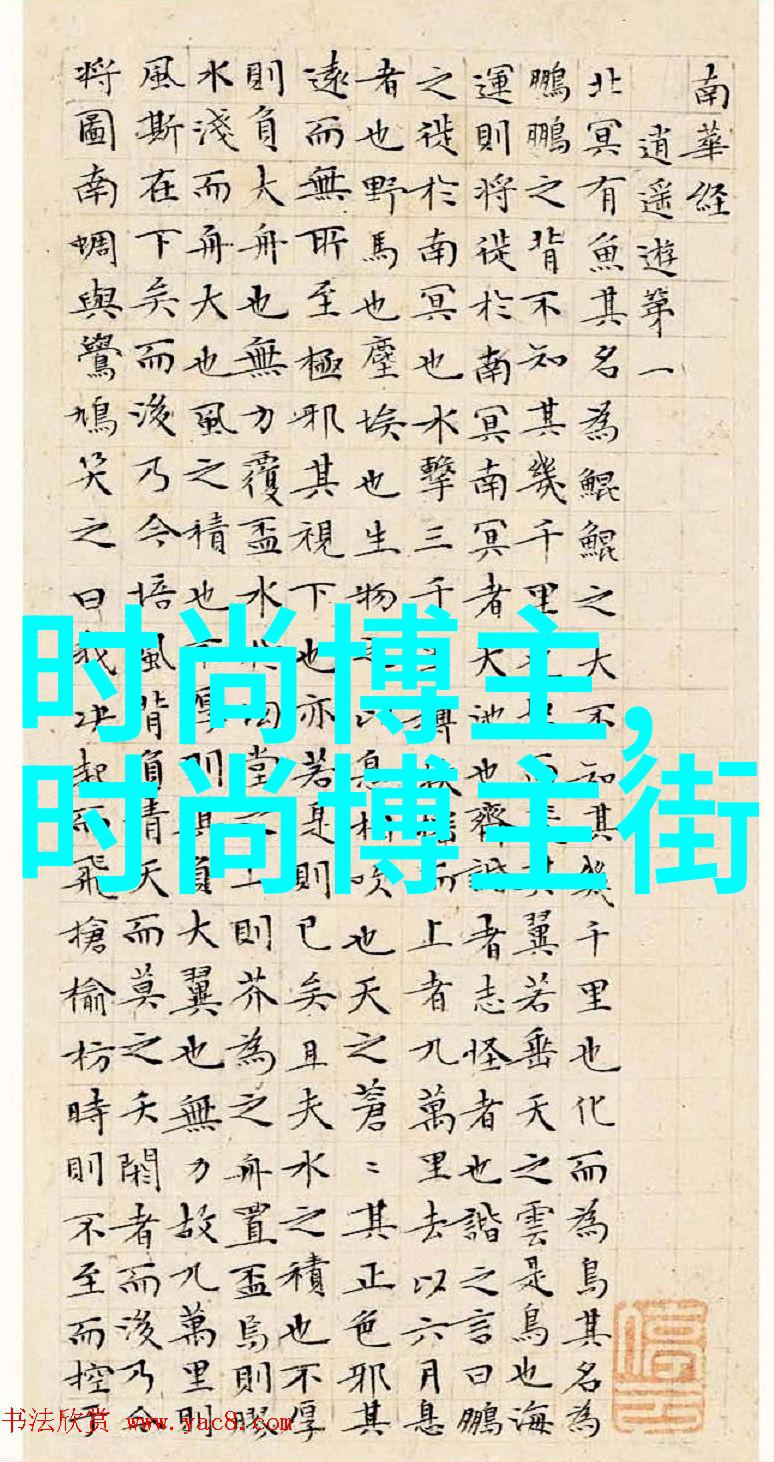 南華経
逍遥遊第一
北冥有魚其名為鯤鯤之大不知其幾千里也化而為鳥其名為
鵬鵬之背不知其幾千里也而其翼若垂天之雲是鳥也海
運則将徙於南冥南冥者天池也齊諧者志怪者也諧之言曰鵬
之徙於南冥也水擊三千里摶而上者九萬里去以六月息
者也野馬也塵埃也生物以息相吹也天之蒼〻其正色邪其
遠而無所至極邪其視下也亦若是則已矣且夫水之積也不厚
則負大舟也無力覆盃水於堂上則芥為之舟置盃焉則膠
水淺而舟大也風之積也不厚則其負大翼也無力故九萬里則
風斯在下矣而後乃今培風背負青天而莫之夭閼者而後乃今
将圖南蜩與鷽鳩笑之曰我决起而飛搶榆枋時則不至而控於
时尚博主,
时尚博主街
书法欣赏 www.yac8.com